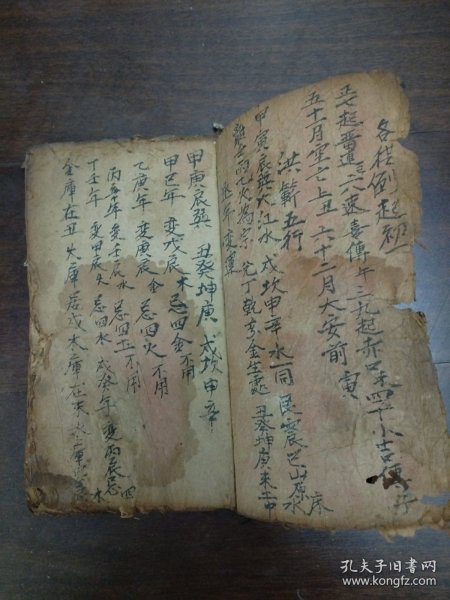 各樣例起初
正七起留連二八速喜傳年三九起赤口来四十小吉
五十一月空亡上丑六十二月大安前寅
洪範五行
甲寅辰巽大江水戌坎申辛水一同艮震巳山原木
離壬丙乙火為宗兌丁乾亥金生處丑癸坤庚未土中
変運
甲寅辰巽 丑癸坤庚 戌坎申辛
甲己年変戊辰木忌四金不用
乙庚年変庚辰金忌四火不用
丙辛年変壬辰水忌四土不用
丁壬年変甲辰火忌四水戊癸年変丙辰忌四木
金庫在丑火庫在戌木庫在未水庫
孔夫子旧书网
www.kongfz.com